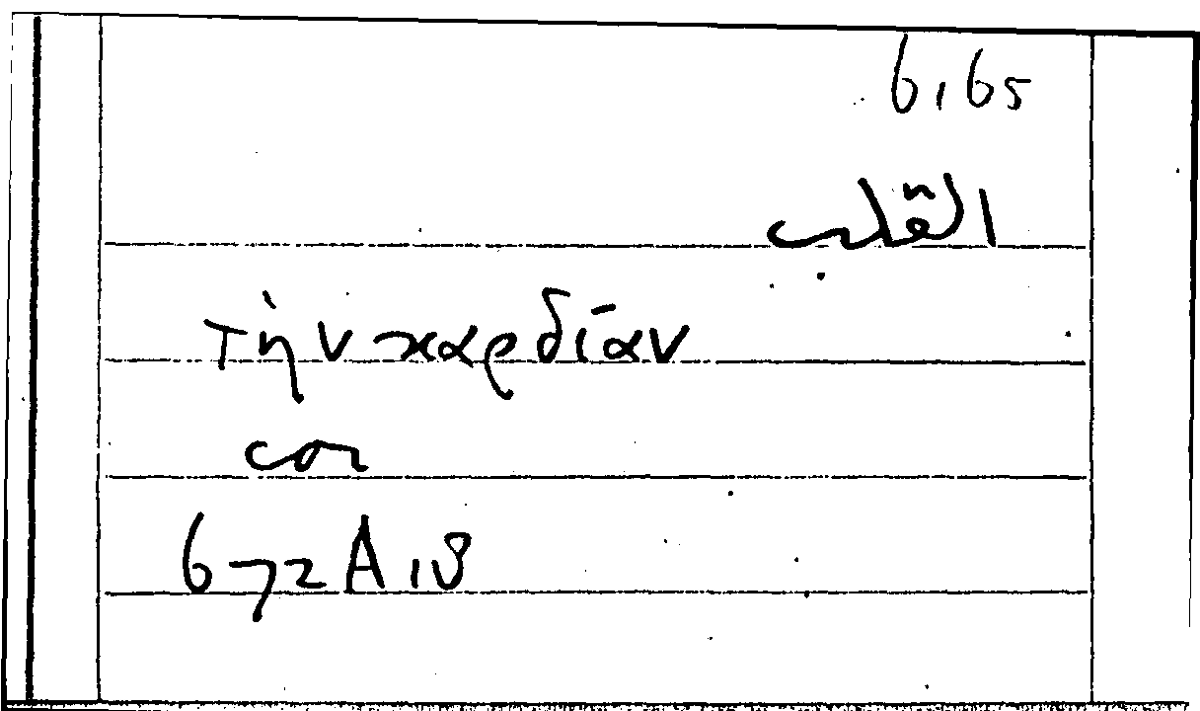 6,65
القلب
τὴν καρδίαν
cor
672A18